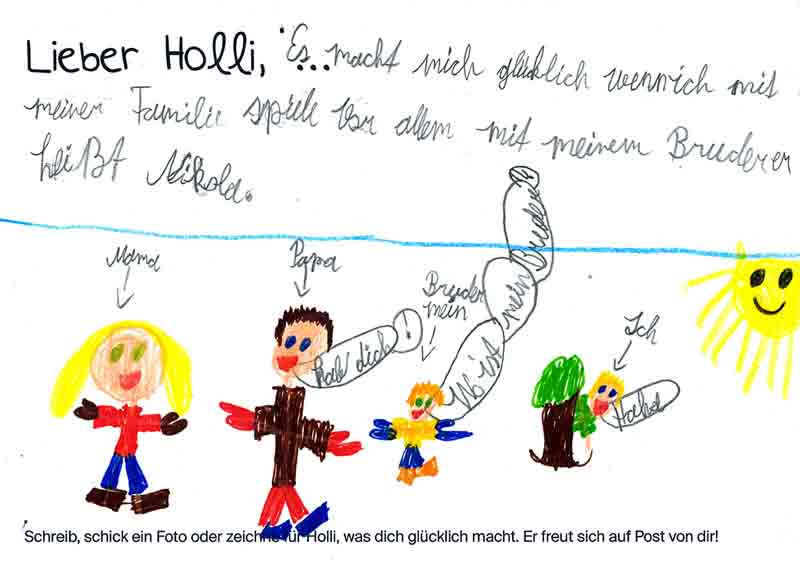 Lieber Holli, Es... macht mich glücklich wenn ich mit
meiner Familie spiele Vor allem mit meinem Bruder er
heißt Nikola.
Mama
Papa
Bruder
mein
Ich
hab dich!
Wo ist mein Bruder?
Haha
Schreib, schick ein Foto oder zeichne für Holli, was dich glücklich macht. Er freut sich auf Post von dir!